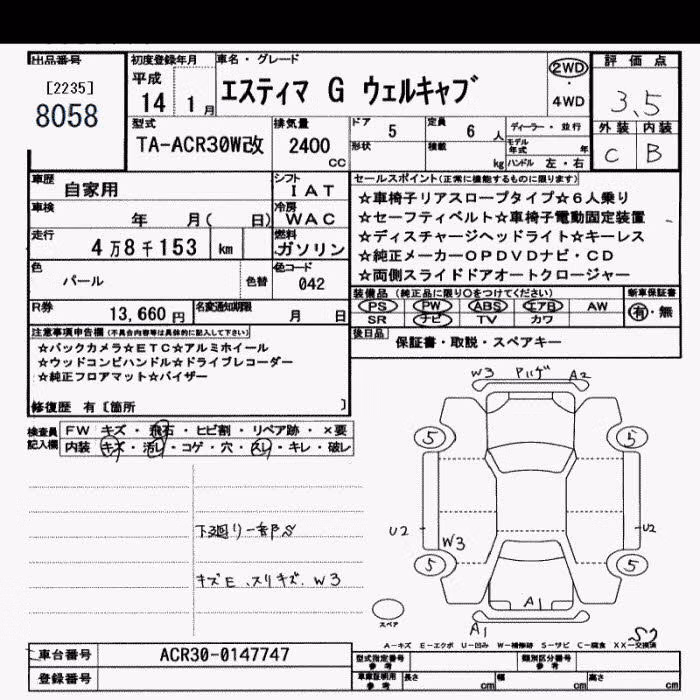 出品番号
[2235]
8058
初度登録年月
平成
14 1月
車名・グレード
エスティマ G ウェルキャブ
2WD
・
4WD
評価点
3.5
外装 内装
C B
型式
TA-ACR30W改
排気量
2400
CC
ドア 5
定員 6人
形状
積載 kg
ディーラー・並行
モデル年式 年
ハンドル 左・右
車歴
自家用
シフト
IAT
車検
年 月( 日)
冷房
WAC
走行
4万8千153 km
燃料
ガソリン
色
パール
色替
色コード
042
R券
13,660円
名変通知期限
月 日
セールスポイント(正常に機能するものに限ります)
☆車椅子リアスロープタイプ☆6人乗り
☆セーフティベルト☆車椅子電動固定装置
☆ディスチャージヘッドライト☆キーレス
☆純正メーカーOPDVDナビ・CD
☆両側スライドドアオートクロージャー
装備品(純正品に限り○をつけてください)
PS PW ABS エアB AW
SR ナビ TV カワ
新車保証書
有・無
後日品
保証書・取説・スペアキー
注意事項申告欄(不具合内容等は具体的に記入して下さい)
☆バックカメラ☆ETC☆アルミホイール
☆ウッドコンビハンドル☆ドライブレコーダー
☆純正フロアマット☆バイザー
修復歴 有〔箇所 〕
検査員記入欄
FW キズ・飛石・ヒビ割・リペア跡・×要
内装 キズ・汚レ・コゲ・穴・スレ・キレ・破レ
下廻り一部S
キズE、スリキズ、W3
W3 A2
5 5
U2 W3 U2
5 5
A1
A1
スペア
S2
A-キズ E-エクボ U-凹み W-補修跡 S-サビ C-腐食 XX-交換済
車台番号 ACR30-0147747
登録番号
型式指定番号
参考
類別区分番号
参考
車庫証明用
参考
長さ cm 幅 cm 高さ cm